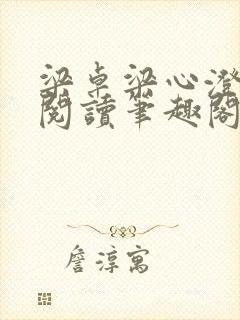 梁卓梁心澄
閱讀筆趣閣
詹淳寓